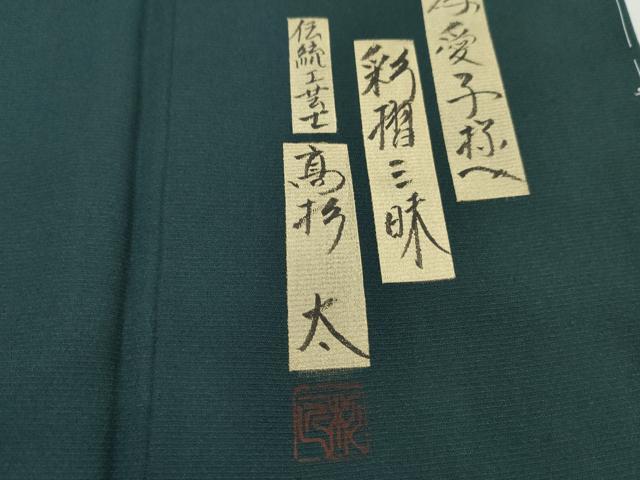 愛子様へ
彩摺三昧
伝統工芸士
髙杉 太